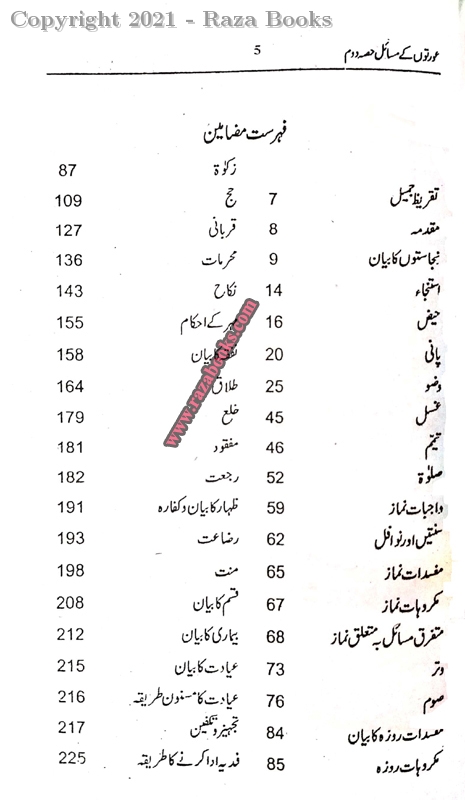 Copyright 2021 - Raza Books
عورتوں کے مسائل حصہ دوم 5
فہرست مضامین
تقریظ جمیل 7
مقدمہ 8
نجاستوں کا بیان 9
استنجاء 14
حیض 16
پانی 20
وضو 25
غسل 45
تیمّم 46
صلوٰۃ 52
واجبات نماز 59
سنتیں اور نوافل 62
مفسدات نماز 65
مکروہات نماز 67
متفرق مسائل بہ متعلق نماز 68
وتر 73
صوم 76
مفسدات روزہ کا بیان 84
مکروہات روزہ 85
زکوٰۃ 87
حج 109
قربانی 127
محرمات 136
نکاح 143
مہر کے احکام 155
نفقہ کا بیان 158
طلاق 164
خلع 179
مفقود 181
رجعت 182
ظہار کا بیان و کفارہ 191
رضاعت 193
منت 198
قسم کا بیان 208
بیماری کا بیان 212
عیادت کا بیان 215
عیادت کا مسنون طریقہ 216
تجہیز و تکفین 217
فدیہ ادا کرنے کا طریقہ 225
www.razabooks.com